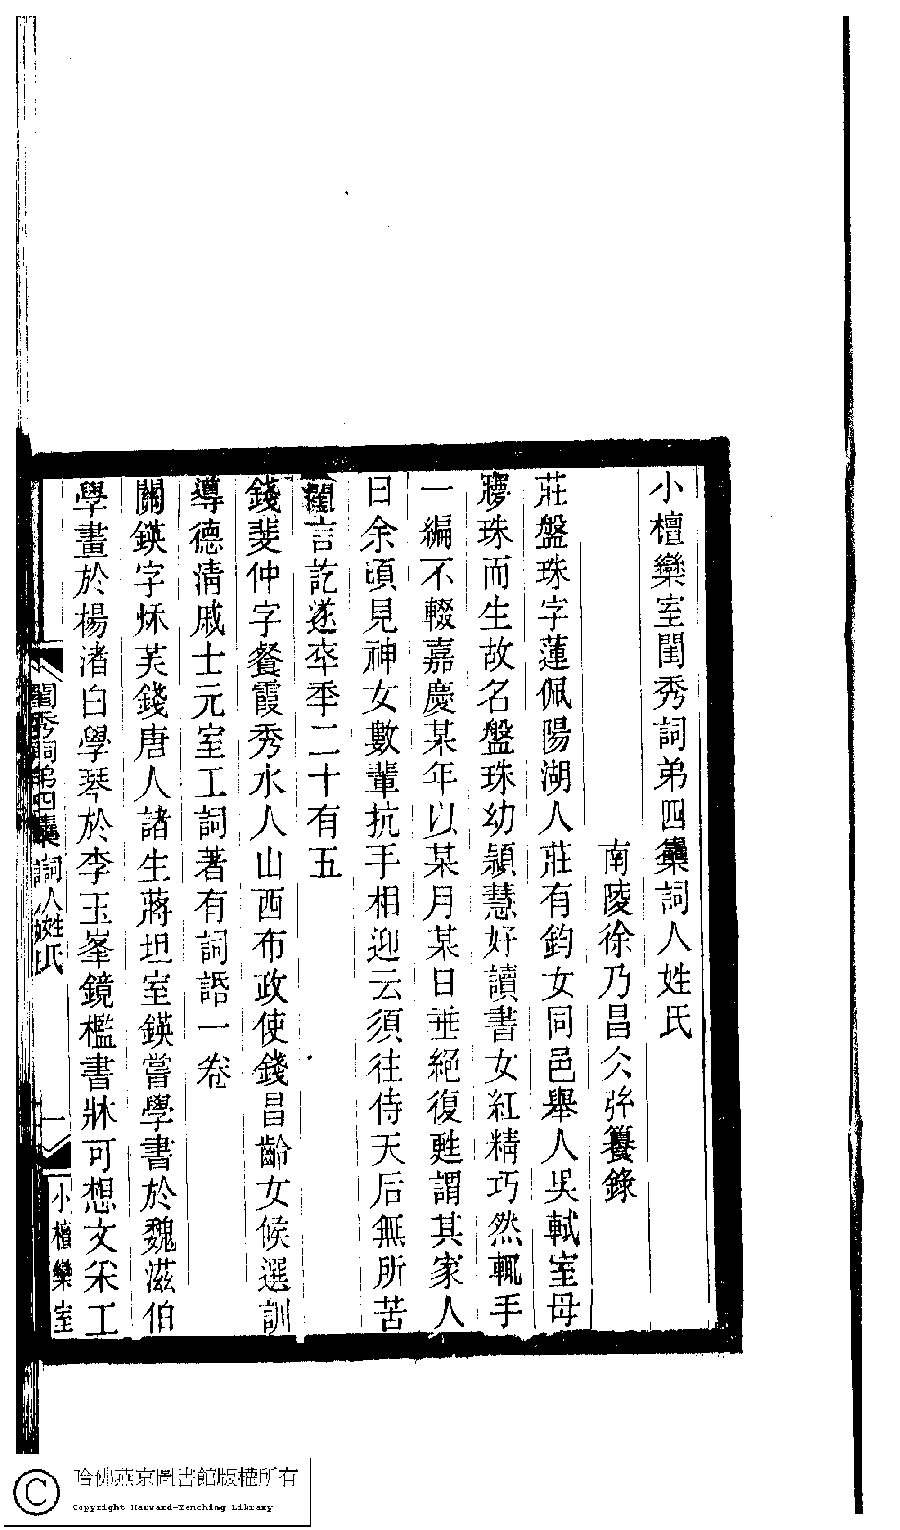 小檀欒室閨秀詞弟四集詞人姓氏
南陵徐乃昌仌弅籑錄
莊盤珠字蓮佩陽湖人莊有鈞女同邑舉人吳軾室母
夢珠而生故名盤珠幼穎慧好讀書女紅精巧然輒手
一編不輟嘉慶某年以某月某日垂絕復甦謂其家人
曰余頃見神女數輩抗手相迎云須往侍天后無所苦
言訖遂卒年二十有五
錢斐仲字餐霞秀水人山西布政使錢昌齡女候選訓
導德清戚士元室工詞著有詞話一卷
關鍈字秌芙錢唐人諸生蔣坦室鍈嘗學書於魏滋伯
學畫於楊渚白學琴於李玉峯鏡檻書牀可想文采工
閨秀詞弟四集 詞人姓氏
一
小檀欒室
哈佛燕京圖書館版權所有
Copyright Harvard-Yenching Library